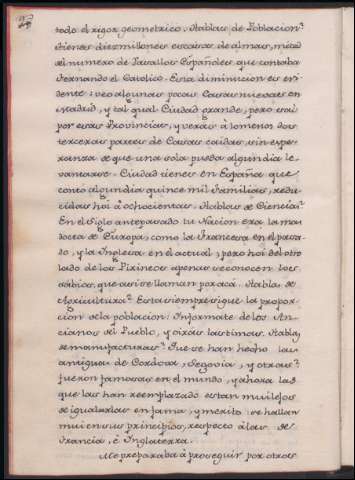 todo el rigor geometrico. Hablas de Poblacion?
tienes diez millones escasos de almas, mitad
del numero de Vasallos Españoles que contaba
Fernando el Catolico. Esta diminucion es evi
dente: veo algunas pocas Casas nuevas en
Madrid, y tal qual Ciudad grande, pero sal
por esas Provincias, y verás à lo menos dos
terceras partes de Casas caidas, sin espe-
ranza de que una sola pueda algun dia le-
vantarse. Ciudad tienes en España que
contó algun dia quince mil familias, redu
cidas hoi à ochocientas. Hablas de Ciencias?
En el Siglo antepasado tu Nacion era la mas
docta de Europa, como la Francesa en el pasa-
do, y la Inglesa en el actual; pero hoi del otro
lado de los Pirineos apenas se conocen los
sabios, que asi se llaman por acá. Habla de
Agricultura? Esta siempre sigue la propor-
cion de la poblacion. Informate de los An-
cianos del Pueblo, y oirás lastimas. Hablas
de manufacturas? Que se han hecho las
antiguas de Cordova, Segovia, y otras?
fueron famosas en el mundo, y ahora las
que las han reemplazado estan mui lejos
de igualarlas en fama, y merito: se hallan
mui en sus principios, respecto à las de
Francia, é Inglaterra.
Me preparaba à proseguir por otros